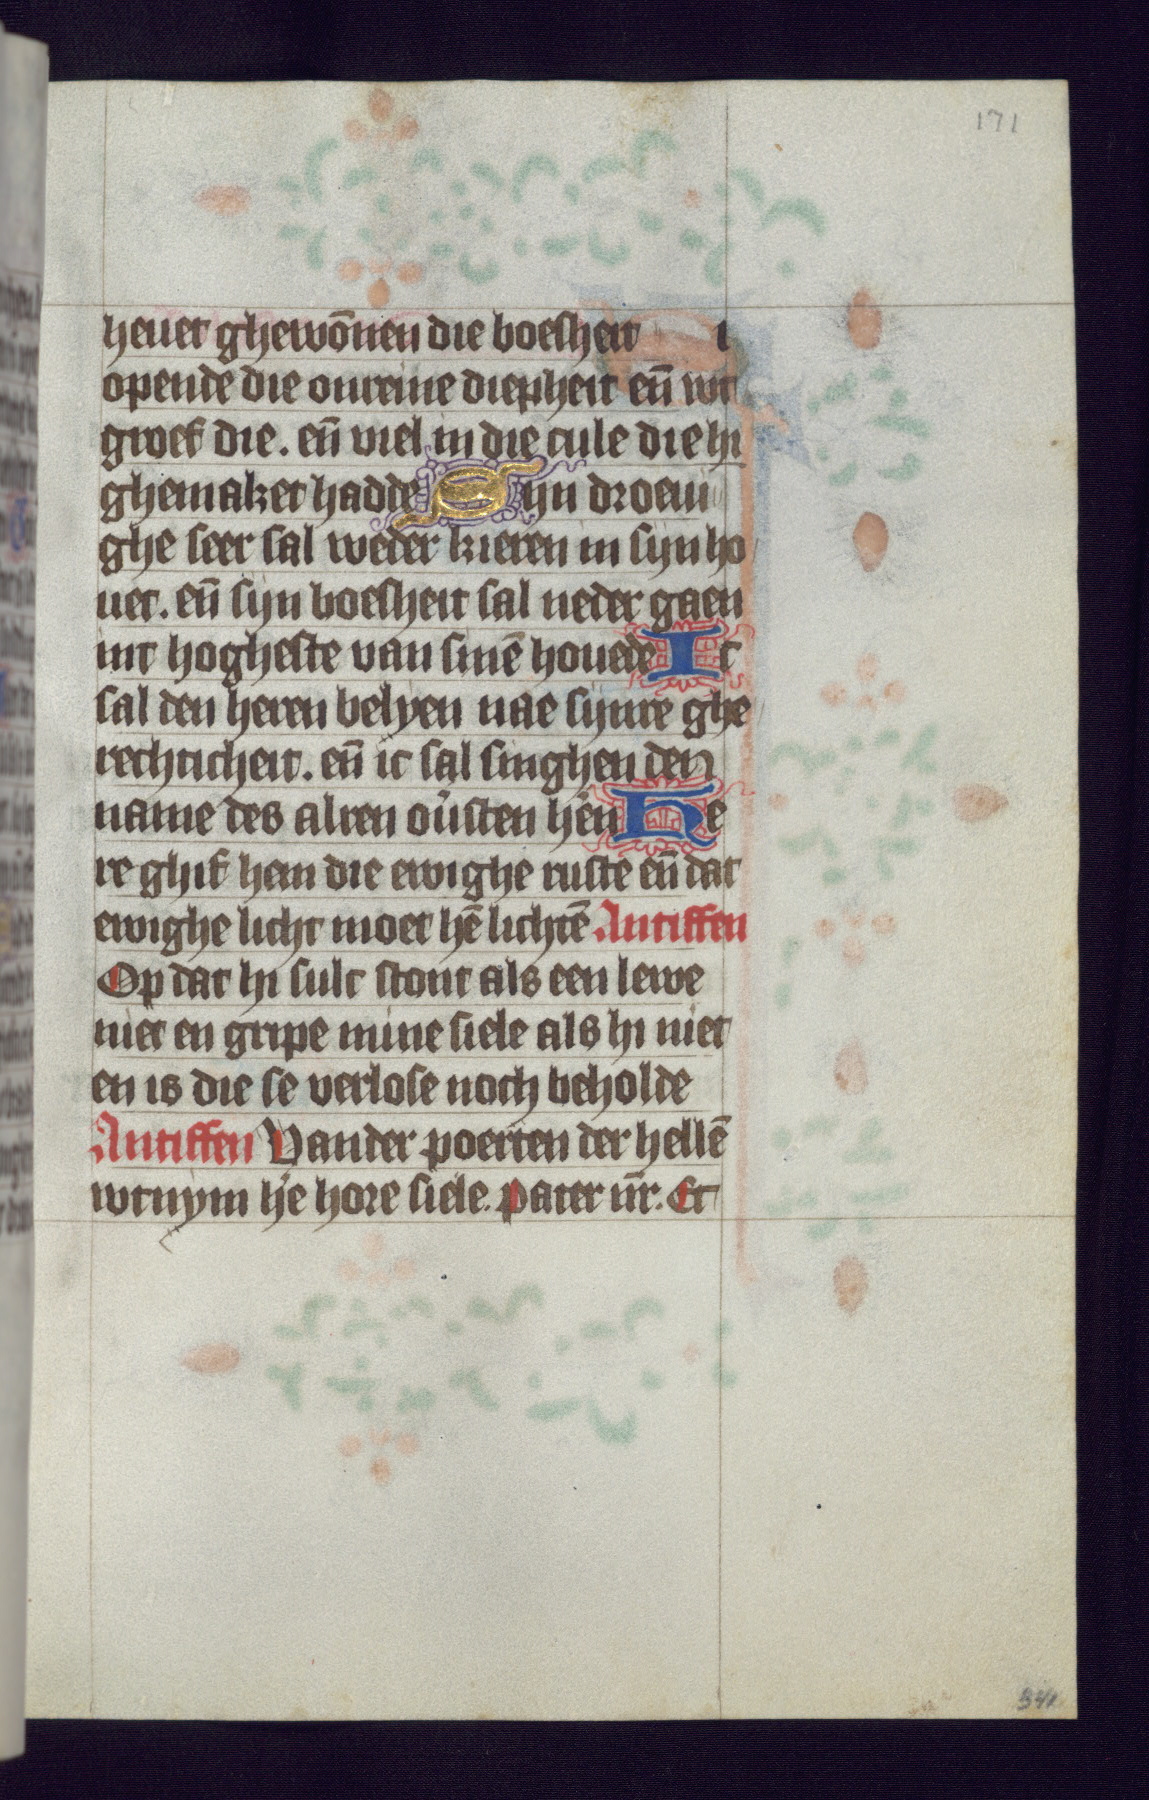 171
heuet ghewōnen die boesheit i
opende die onreine diepheit eñ wt
groef die. eñ viel in die cule die hi
ghemaket hadde Syn droeui
ghe seer sal weder kieren in syn ho
uet. eñ syn boesheit sal neder gaen
int hogheste van sinē houede Ic
sal den heren belyen nae synre ghe
rechticheit. eñ ic sal singhen den
name des alren ou̓sten hēn He
re ghif hem die ewighe ruste eñ dat
ewighe licht moet hē lichtē Antiffen
Op dat hi sulc stont als een lewe
niet en gripe mine siele als hi niet
en is die se verlose noch beholde
Antiffen Vander poerten der hellē
wtnym h̓e hore siele. Pater nr̄. Et